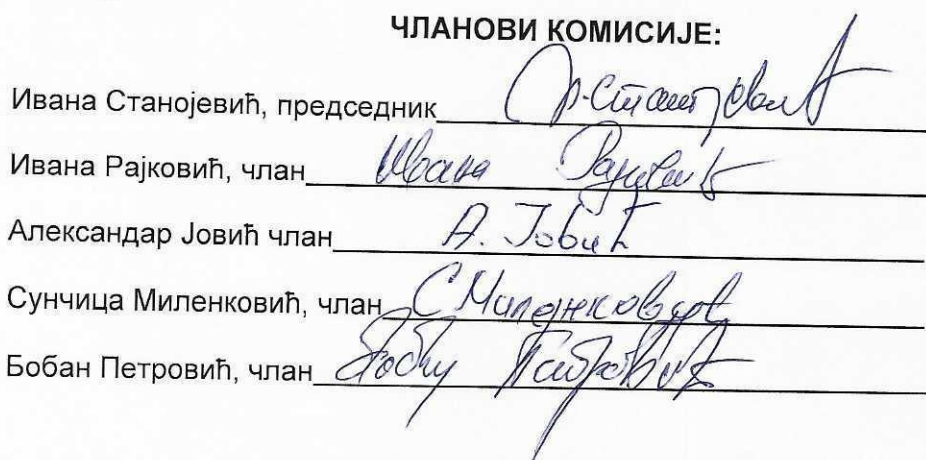 ЧЛАНОВИ КОМИСИЈЕ:
Ивана Станојевић, председник
Ивана Рајковић, члан Ивана Рајковић
Александар Јовић члан А. Јовић
Сунчица Миленковић, члан С Миленковић
Бобан Петровић, члан Петровић